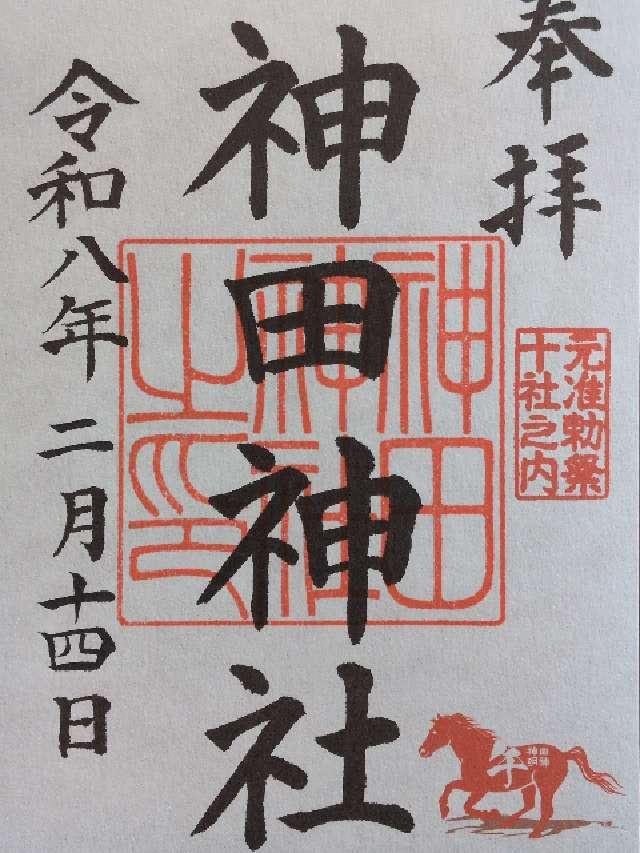 奉拝
元准勅祭
十社之内
神田神社
神田
神社
之印
令和八年 二月十四日